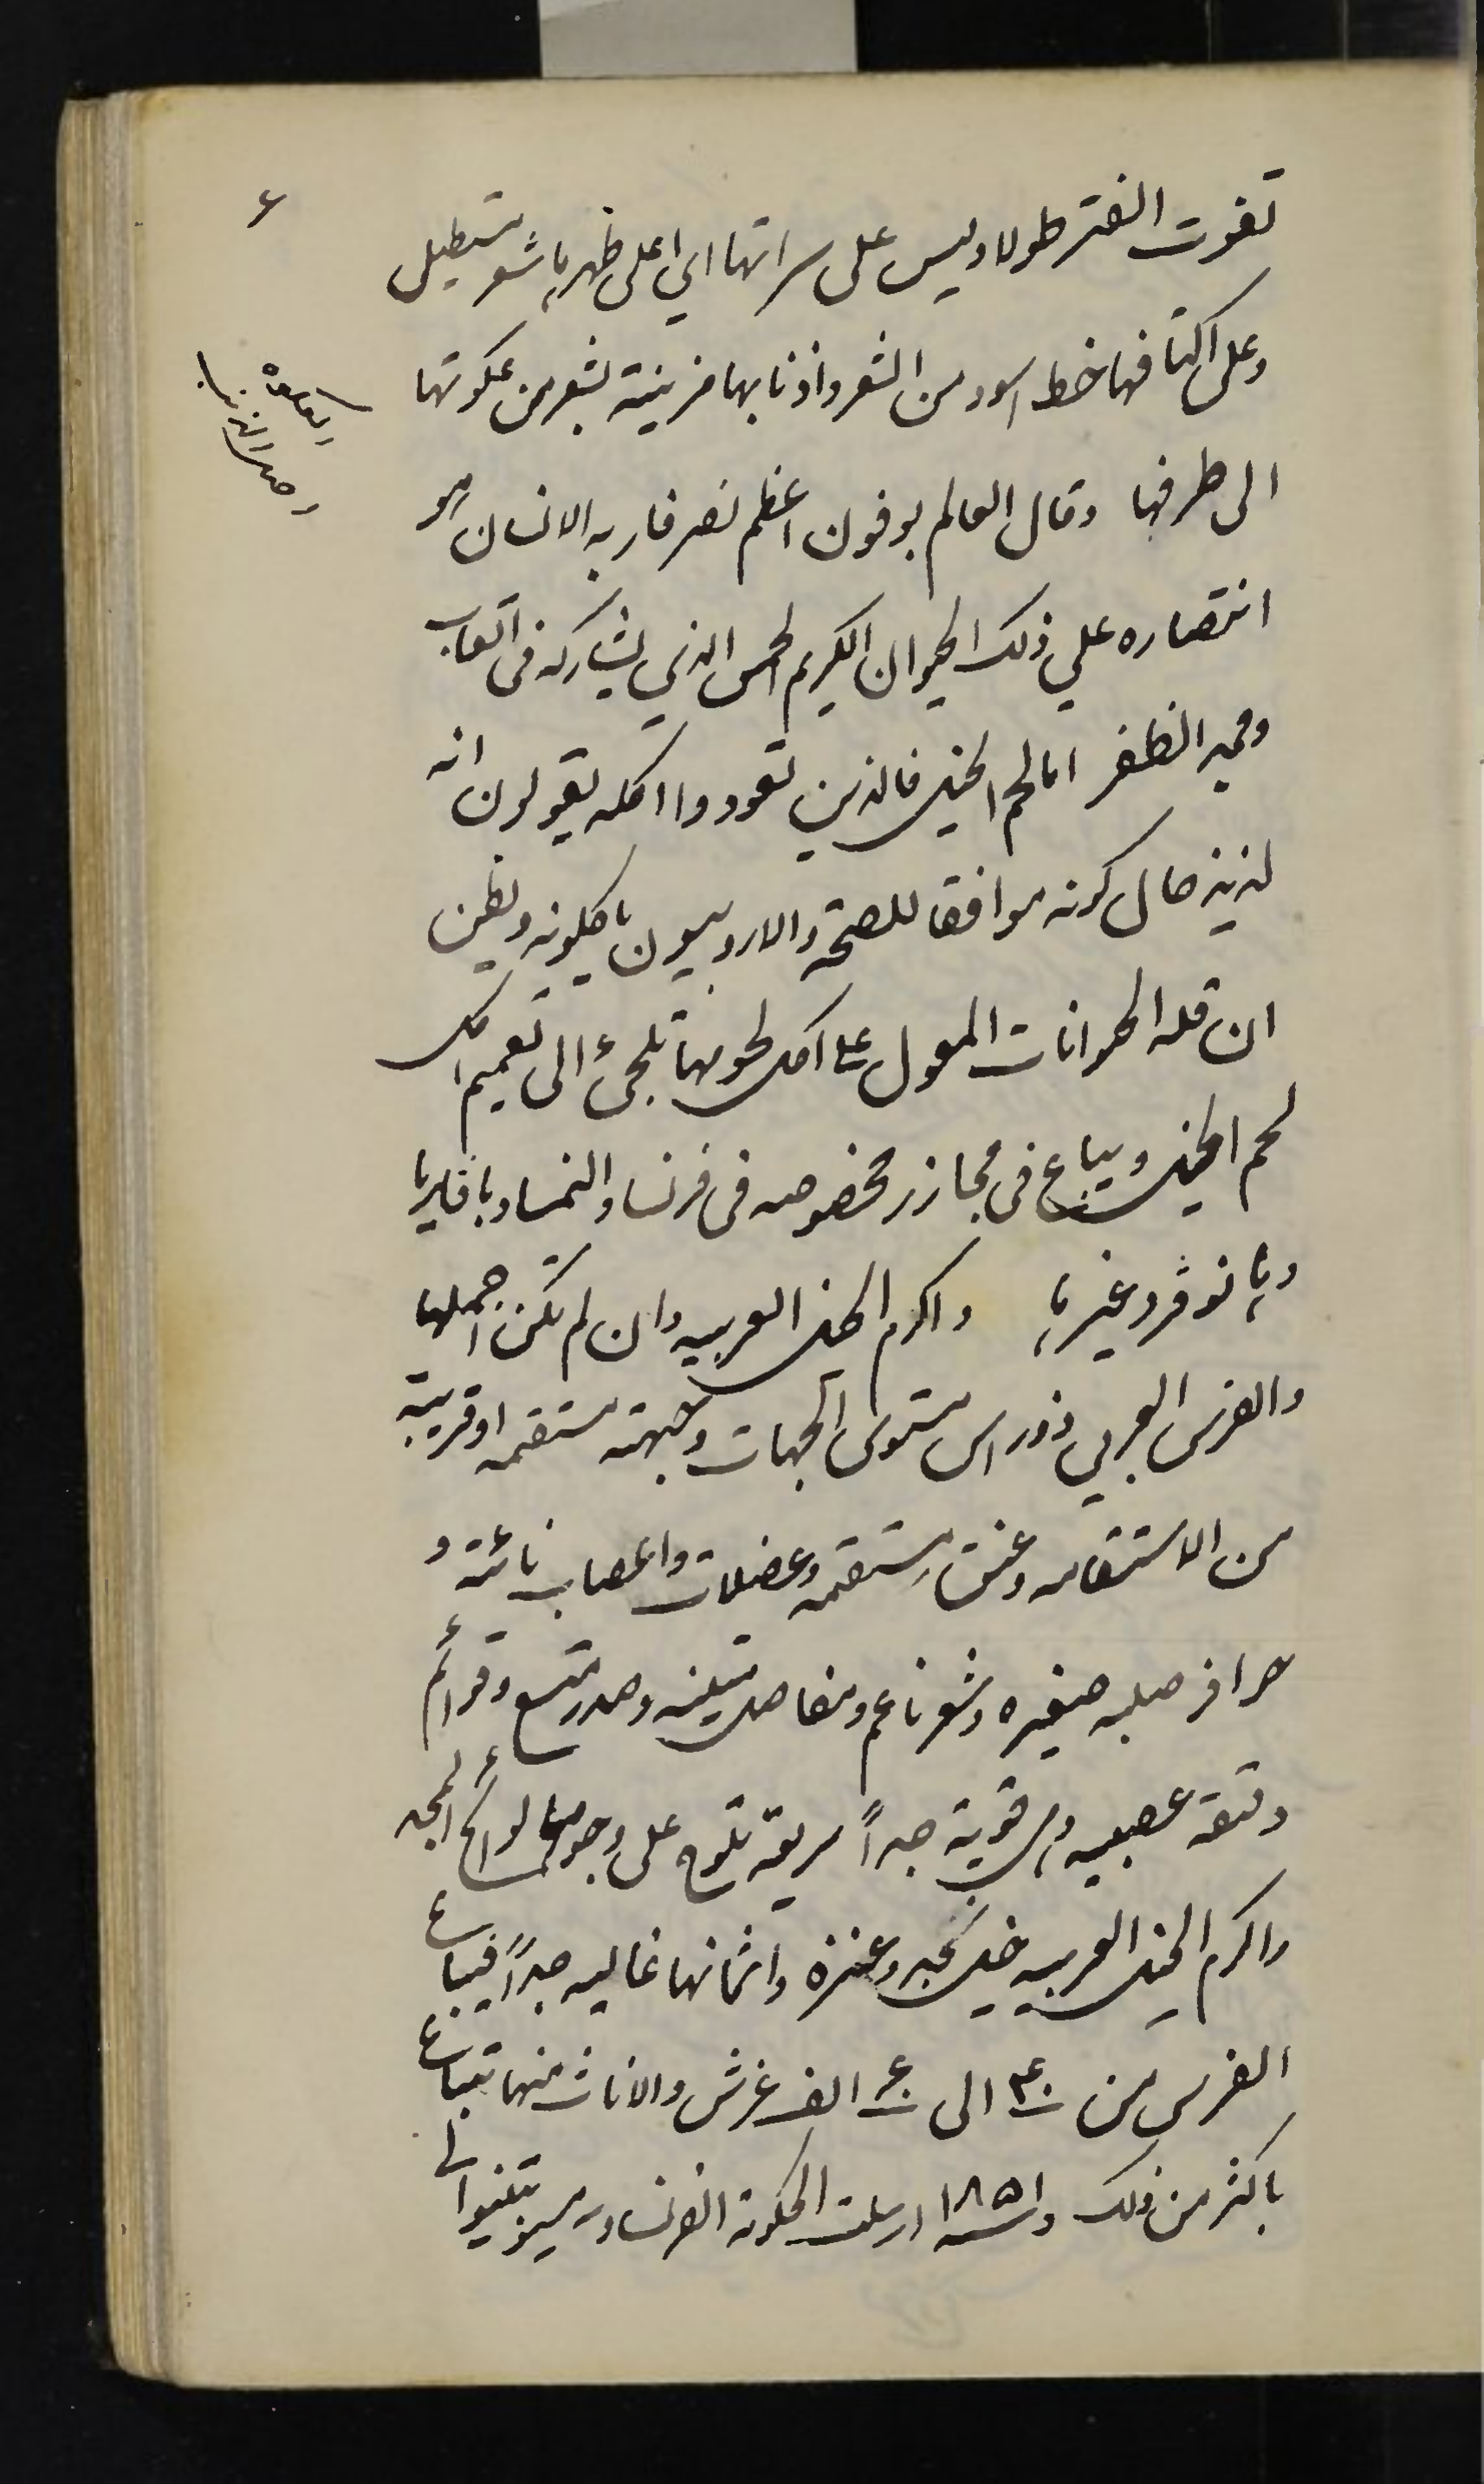 ٤
تفوت الفتر طولا وليس على سراتها اي اعلى ظهرها شعر مستطيل
وعلى اكتافها خط اسود من الشعر واذنابها مزينة بشعر من عكوتها
العكوة
اصل الذنب
الى طرفها وقال العالم بوفون اعظم نصر فاز به الانسان هو
انتصاره على ذلك الحيوان الكريم الحمس الذي يشاركه في اتعاب
ومجد الظفر اما لحم الخيل فالذين تعودوا اكله يقولون انه
لذيذ حال كونه موافقا للصحة والاروبيون ياكلونه ويظن
ان قلة الحيوانات المعول على اكل لحومها تلجئ الى تعميم اكل
لحم الخيل ويباع في مجازر مخصوصه في فرنسا والنمسا وباڤاريا
وهانوڤر وغيرها واكرم الخيل العربيه وان لم تكن اجملها
والفرس العربي ذو راس مستوى الجهات وجبهته مستقيمه او قريبة
من الاستقامه وعنق مستقيمه وعضلات واعصاب نائتة و
حوافر صلبه صغيره وشعر ناعم ومفاصل متينه وصدر متسع وقوائم
دقيقة عصبيه وهي قوية جداً سريعة تلوح على وجوهها لوائح المجد
واكرم الخيل العربيه خيل نجد وعنزه واثمانها غاليه جداً فيباع
الفرس من ٤٠ الى ٦٠ الف غرش والاناث منها تباع
باكثر من ذلك و١٨٥١ ارسلت الحكومة الفرنساويه